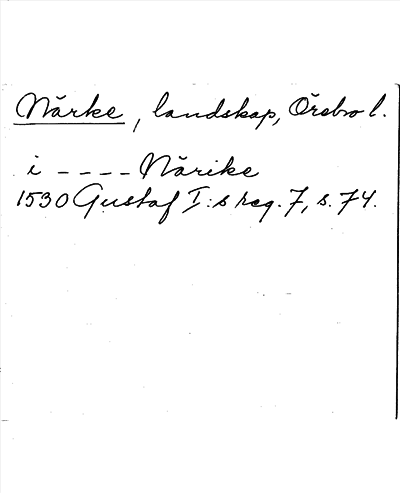 Närke, landskap, Örebro l.
i ---- Närike
1530 Gustaf I:s reg. 7, s. 74.